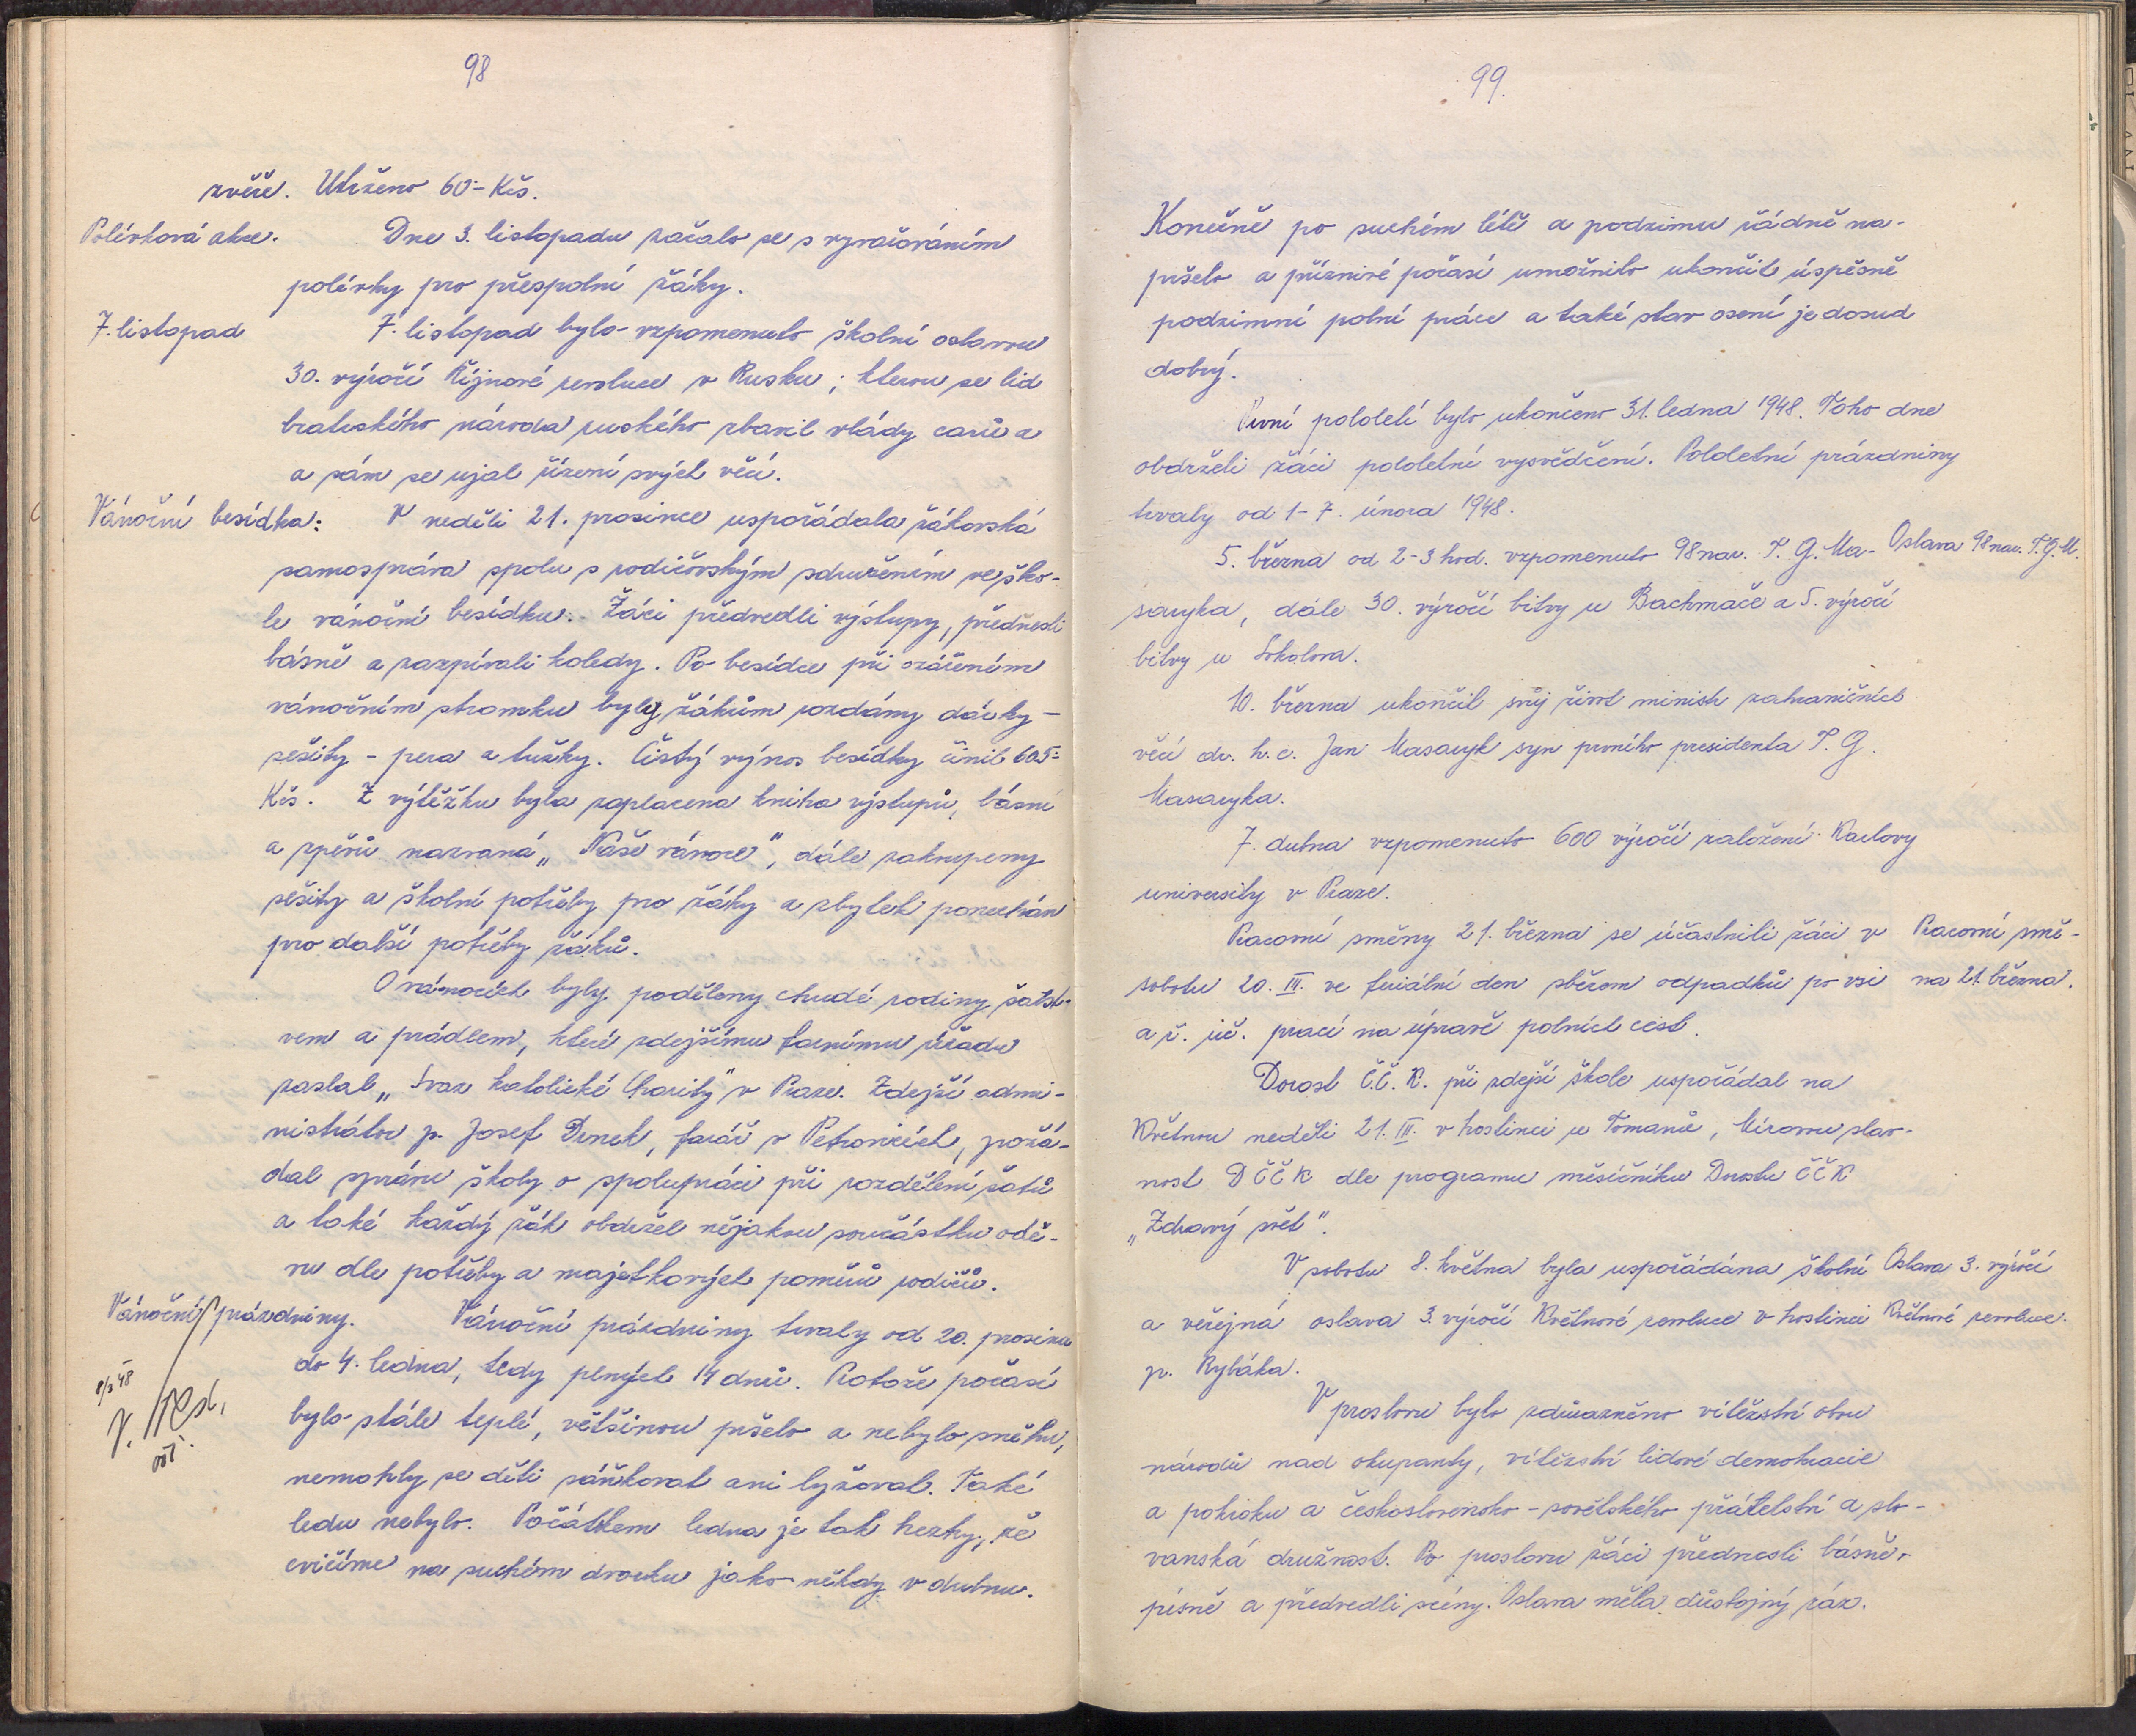 98
zvěře. Utrženo 60·- Kčs.
Polévková akce. Dne 3. listopadu začalo se s vyvařováním
polévky pro přespolní žáky.
7. listopad 7. listopad bylo vzpomenuto školní oslavou
30. výročí Říjnové revoluce v Rusku; kterou se lid
bratrského národa ruského zbavil vlády carů a
a sám se ujal řízení svých věcí.
Vánoční besídka: V neděli 21. prosince uspořádala žákovská
samospráva spolu s rodičovským sdružením ve ško-
le vánoční besídku. Žáci předvedli výstupy, přednesli
básně a zazpívali koledy. Po besídce při ozářeném
vánočním stromku byly žákům rozdány dárky -
sešity - pera a tužky. Čistý výnos besídky činil 605·-
Kčs. Z výtěžku byla zaplacena kniha výstupů, básní
a zpěvů nazvaná „Naše vánoce", dále zakoupeny
sešity a školní potřeby pro žáky a zbytek ponechán
pro další potřeby žáků.
O vánocích byly poděleny chudé rodiny šatst-
vem a prádlem, které zdejšímu farnímu úřadu
zaslal „Svaz katolické Charity" v Praze. Zdejší admi-
nistrátor p. Josef Drnek, farář v Petrovicích, požá-
dal správu školy o spolupráci při rozdělení šatů
a také každý žák obdržel nějakou součástku odě-
vu dle potřeby a majetkových poměrů rodičů.
Vánoční prázdniny. Vánoční prázdniny trvaly od 20. prosince
do 4. ledna, tedy plných 14 dnů. Protože počasí
bylo stále teplé, většinou pršelo a nebylo sněhu,
nemohly se děti sáňkovat ani lyžovat. Také
ledu nebylo. Počátkem ledna je tak hezky, že
cvičíme na suchém dvorku jako někdy v dubnu.
99.
Konečně po suchém létě a podzimu řádně na-
pršelo a příznivé počasí umožnilo ukončit úspěšně
podzimní polní práce a také stav osení je dosud
dobrý.
První pololetí bylo ukončeno 31. ledna 1948. Toho dne
obdrželi žáci pololetní vysvědčení. Pololetní prázdniny
trvaly od 1-7. února 1948.
5. března od 2-3 hod. vzpomenuto 98 nar. T. G. Ma- Oslava 98 nar. T.G.M.
saryka, dále 30. výročí bitvy u Bachmače a 5. výročí
bitvy u Sokolova.
10. března ukončil svůj život ministr zahraničních
věcí dr. h. c. Jan Masaryk syn prvního presidenta T. G.
Masaryka.
7. dubna vzpomenuto 600 výročí založení Karlovy
university v Praze.
Pracovní směny 21. března se účastnili žáci v Pracovní smě-
sobotu 20. III. ve feriální den sběrem odpadků po vsi na 21. března.
a ř. uč. prací na úpravě polních cest.
Dorost Č.Č.K. při zdejší škole uspořádal na
Květnou neděli 21. III. v hostinci u Tomanů, Mírovou slav-
nost DČČK dle programu měsíčníku Dorostu ČČK
„Zdravý svět".
V sobotu 8. května byla uspořádána školní Oslava 3. výročí
a veřejná oslava 3. výročí Květnové revoluce v hostinci Květnové revoluce.
p. Rybáka.
V proslovu bylo zdůrazněno vítězství obou
národů nad okupanty, vítězství lidové demokracie
a pokroku a československo-sovětského přátelství a slo-
vanská družnost. Po proslovu žáci přednesli básně,
písně a předvedli scény. Oslava měla důstojný ráz.